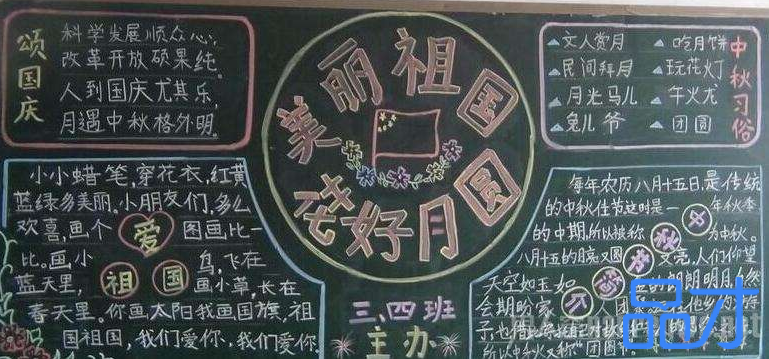 颂国庆
科学发展顺众心,
改革开放硕果纯。
人到国庆尤其乐,
月遇中秋格外明。
美丽祖国
花好月圆
中秋习俗
文人赏月
吃月饼
民间拜月
玩花灯
月光马儿
午火龙
兔儿爷
团圆
小小蜡笔,穿花衣,红黄
蓝绿多美丽。小朋友们,多么
欢喜,画个 爱 图画比一
比。画小 鸟,飞在
蓝天里, 祖国 画小草,长在
春天里。你画太阳我画国旗,祖
国祖国,我们爱你,我们爱你
三、四班
主办
每年农历八月十五日,是传统
的中秋佳节这时是一 年秋季
的中期,所以被称 为中秋。
八月十五的月亮又圆 又亮,人们仰望
天空如玉如 的朗朗明月自然
会期盼家 团聚
子也借
所以中秋又称"团圆
中秋
品才